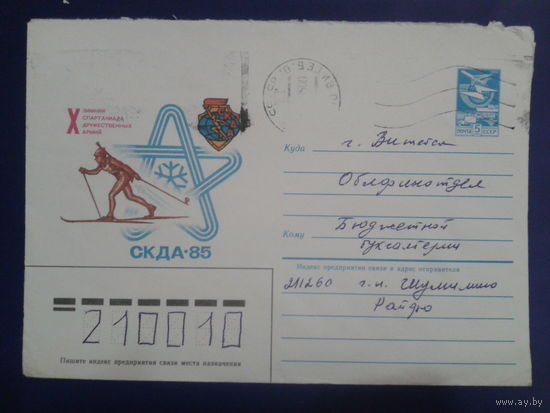 X ЗИМНЯЯ
СПАРТАКИАДА
ДРУЖЕСТВЕННЫХ
АРМИЙ
СКДА·85
ПОЧТА 5 СССР
Куда г. Витебск
Облфинотдел
Бюджетной
Кому бухгалтерии
Индекс предприятия связи и адрес отправителя
211260 г.п. Шумилино
Райфо
210010
Пишите индекс предприятия связи места назначения
www.ay.by